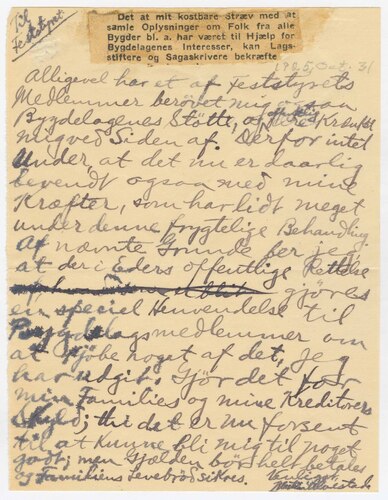 Til
Feststyret
Det at mit kostbare Stræv med at
samle Oplysninger om Folk fra alle
Bygder bl. a. har været til Hjælp for
Bygdelagenes Interesser, kan Lags-
stiftere og Sagaskrivere bekræfte
1925, Oct. 31
Alligevel har et af Feststyrets
Medlemmer berøvet mig ogsaa
Bygdelagenes Støtte, og Krænket
mig ved Siden af. Derfor intet
Under at det nu er daarlig
bevendt ogsaa med mine
Kræfter, som har lidt meget
under denne frygtelige Behandling.
Af nævnte Grunde ber jeg
at der i Eders offentlige Rettelse
gjøres
en speciel Henvendelse til
Bygdelagsmedlemmer om
at Kjøbe noget af det, jeg
har udgit. Gjør det for
min Families og mine Kreditorers
Skyld; thi det er nu forsent
til at Kunne bli mig til noget
godt; men Gjælden bør helt betales
og Familiens Levebrød sikres.
Venligst,
Martin Ulvestad